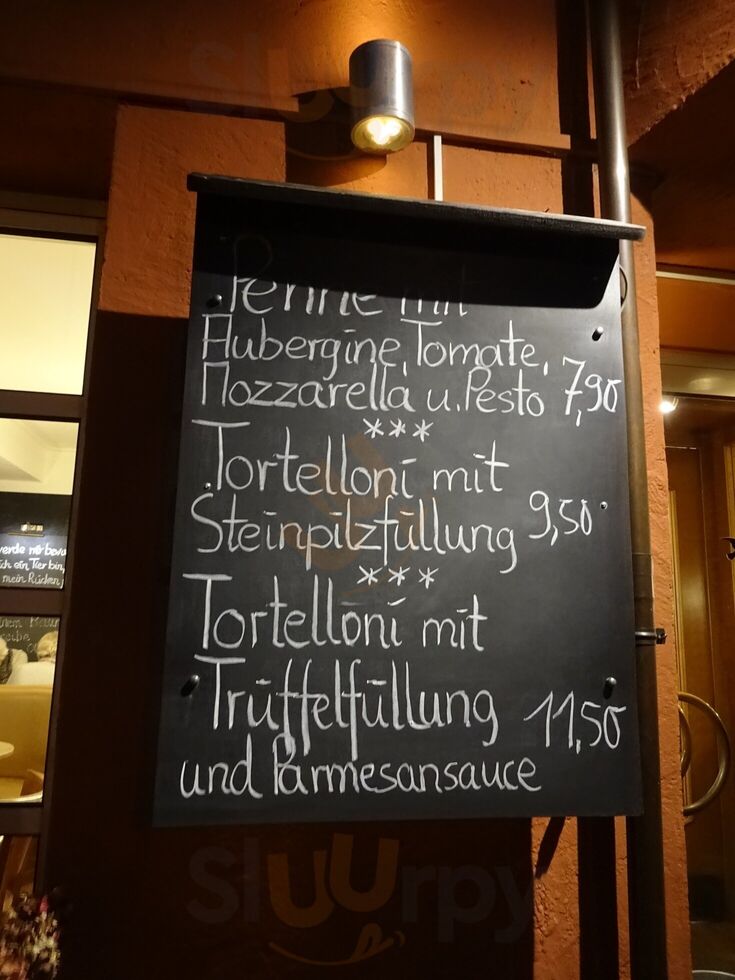 Sluurpy
Penne mit
Aubergine, Tomate,
Mozzarella u. Pesto 7,90
***
Tortelloni mit
Steinpilzfüllung 9,50
***
Tortelloni mit
Trüffelfüllung 11,50
und Parmesansauce
werde mir bewu
ich ein Tier bin,
mein Rücken
Sluurpy